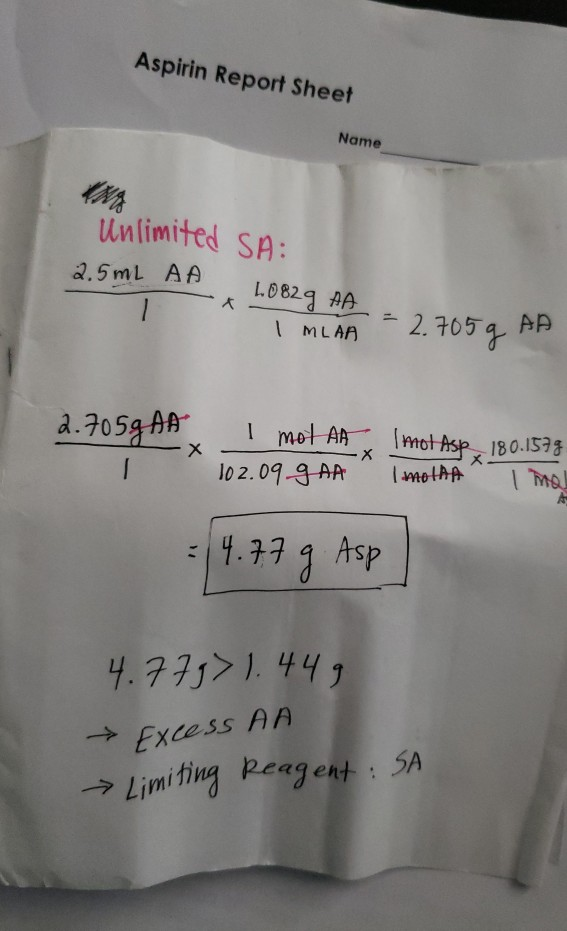 Aspirin Report Sheet
Name
Unlimited SA:
2.5mL AA / 1 x 1.082g AA / 1 MLAA = 2.705g AA
2.705g AA / 1 x 1 mol AA / 102.09 g AA x 1mol Asp / 1molAA x 180.157g / 1 mol
= 4.77 g Asp
4.77g > 1.44g
→ Excess AA
→ Limiting Reagent: SA